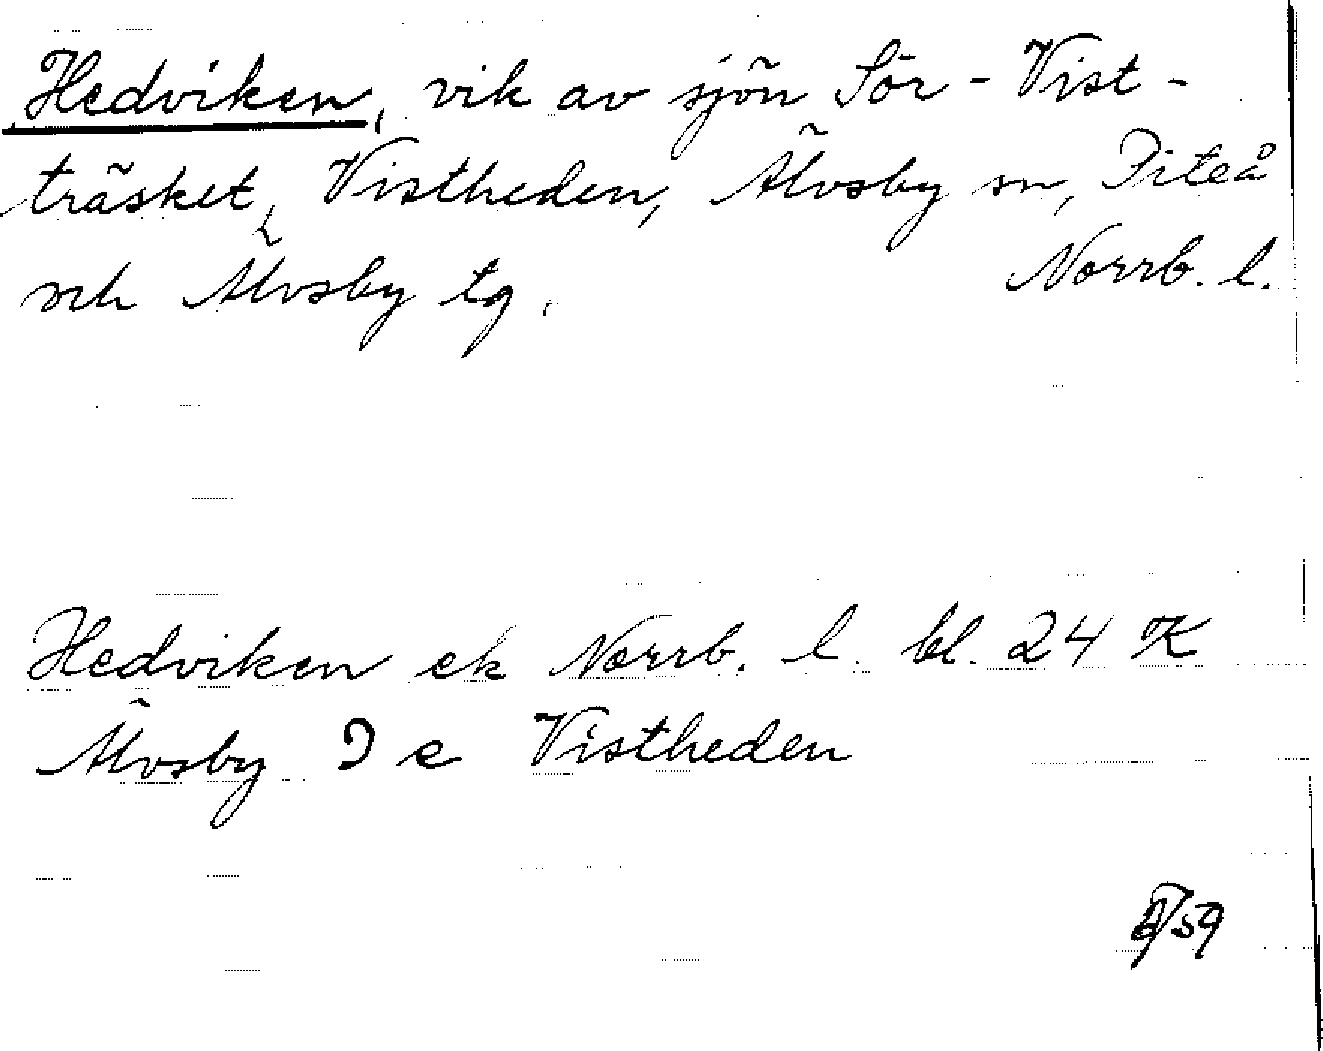 Hedviken, vik av sjön Sör-Vist-
träsket, Vistheden, Älvsby sn, Piteå
och Älvsby tg. Norrb. l.
Hedviken ek Norrb. l. bl. 24 K
Älvsby I e Vistheden
/59